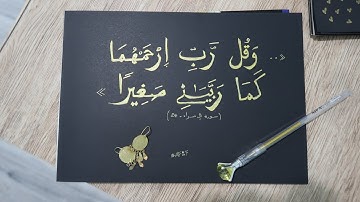 «.. وَقُل رَّبِّ اِرْحَمْهُمَا
كَمَا رَبَّيَانِي صَغِيرًا »
(سورة الإسراء - 24)